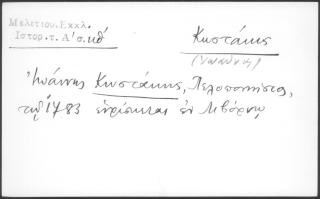 Μελετίου. Εκκλ.
Ιστορ. τ. Α' σ. κθ
Κωστάκης
(Ιωάννης)
Ἰωάννης Κωστάκης, Πελοποννήσιος,
τῷ 1783 εὑρίσκεται ἐν Λιβόρνῳ